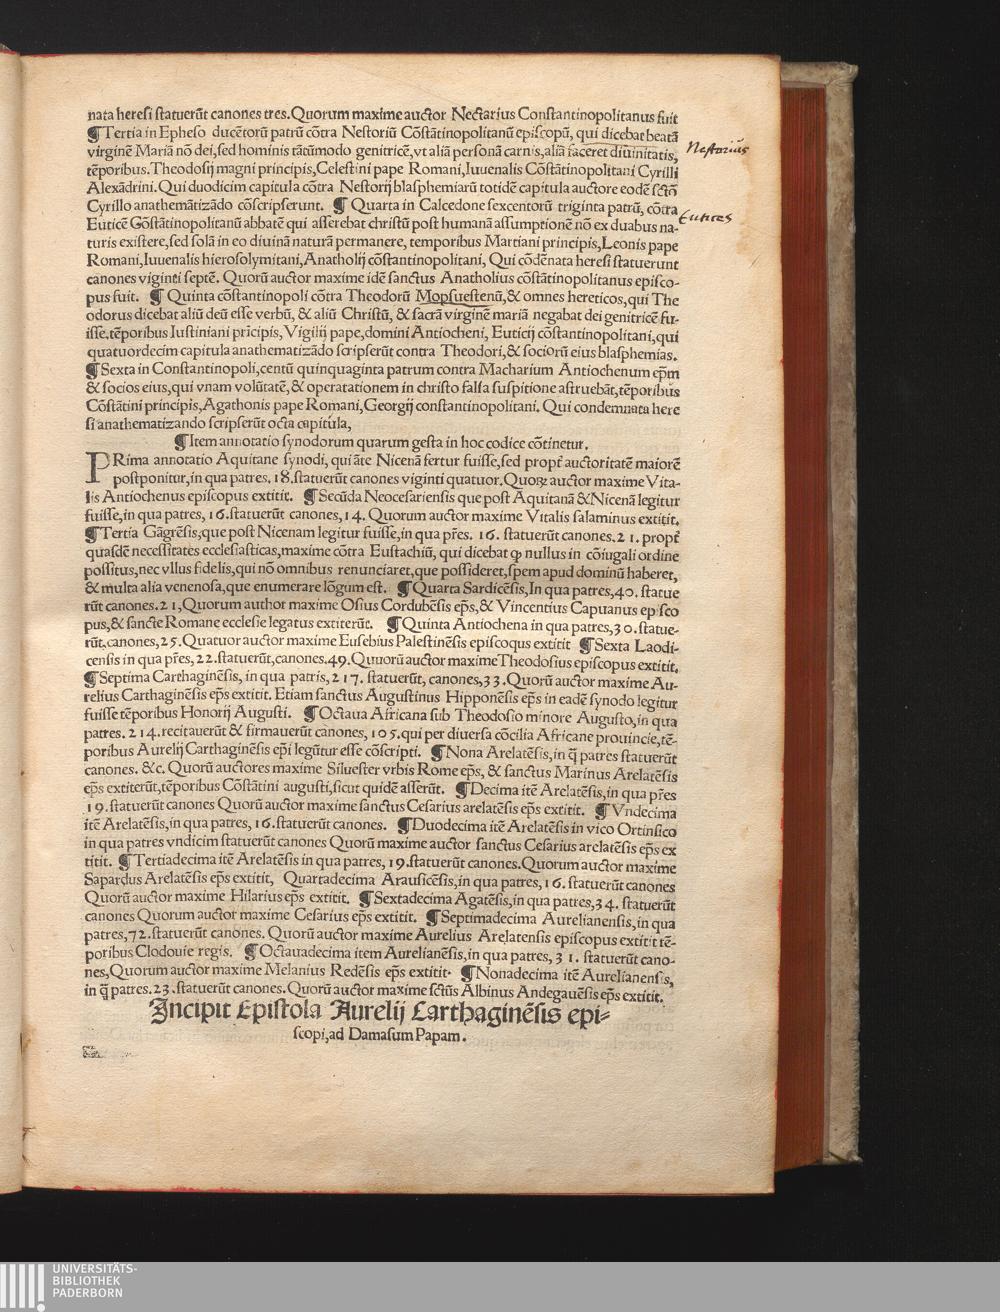 nata heresi statuerũt canones tres.Quorum maxime auctor Nectarius Constantinopolitanus fuit
¶Tertia in Epheso ducẽtorũ patrũ cõtra Nestoriũ Cõstãtinopolitanũ episcopũ, qui dicebat beatã
virginẽ Mariã nõ dei,sed hominis tãtũmodo genitricẽ,vt aliã personã carnis,aliã faceret diuinitatis,
Nestorius
tẽporibus.Theodosij magni principis,Celestini pape Romani,Iuuenalis Cõstãtinopolitani Cyrilli
Alexãdrini.Qui duodicim capitula cõtra Nestorij blasphemiarũ totidẽ capitula auctore eodẽ sctõ
Cyrillo anathematizãdo cõscripserunt. ¶ Quarta in Calcedone sexcentorũ triginta patrũ, cõtra
Eutices
Euticẽ Gõstãtinopolitanũ abbatẽ qui asserebat christũ post humanã assumptionẽ nõ ex duabus na-
turis existere,sed solã in eo diuinã naturã permanere, temporibus Martiani principis,Leonis pape
Romani,Iuuenalis hierosolymitani,Anatholij cõstantinopolitani, Qui cõdẽnata heresi statuerunt
canones viginti septẽ. Quorũ auctor maxime idẽ sanctus Anatholius cõstãtinopolitanus episco-
pus fuit. ¶ Quinta cõstantinopoli cõtra Theodorũ Mopsuestenũ,& omnes hereticos,qui The
odorus dicebat aliũ deũ esse verbũ, & aliũ Christũ, & sacrã virginẽ mariã negabat dei genitricẽ fu-
isse.tẽporibus Iustiniani prĩcipis,Vigilij pape,domini Antiocheni, Euticij cõstantinopolitani,qui
quatuordecim capitula anathematizãdo scripserũt contra Theodori,& sociorũ eius blasphemias.
¶Sexta in Constantinopoli,centũ quinquaginta patrum contra Macharium Antiochenum ep̃m
& socios eius,qui vnam volũtatẽ,& operatationem in christo falsa suspitione astruebãt,tẽporibus
Cõstãtini principis,Agathonis pape Romani,Georgij constantinopolitani. Qui condemnata here
si anathematizando scripserũt octa capitula,
¶Item annotatio synodorum quarum gesta in hoc codice cõtinetur.
PRima annotatio Aquitane synodi, qui ãte Nicenã fertur fuisse,sed propt̃ auctoritatẽ maiorẽ
postponitur,in qua patres. 18.statuerũt canones viginti quatuor.Quoꝝ auctor maxime Vita-
lis Antiochenus episcopus extitit. ¶Secũda Neocesariensis que post Aquitanã &Nicenã legitur
fuisse,in qua patres, 16.statuerũt canones,14. Quorum auctor maxime Vitalis salaminus extitit.
¶Tertia Gãgrẽsis,que post Nicenam legitur fuisse,in qua p̃res. 16. statuerũt canones.21.propt̃
quasdẽ necessitates ecclesiasticas,maxime cõtra Eustachiũ, qui dicebat ꝙ nullus in cõiugali ordine
possitus,nec vllus fidelis,qui nõ omnibus renunciaret,que possideret,spem apud dominũ haberet,
& multa alia venenosa,que enumerare lõgum est. ¶Quarta Sardicẽsis,In qua patres,40. statue
rũt canones.21,Quorum author maxime Osius Cordubẽsis ep̃s,& Vincentius Capuanus episco
pus,& sancte Romane ecclesie legatus extiterũt. ¶Quinta Antiochena in qua patres,30.statue-
rũt,canones,25.Quatuor auctor maxime Eusebius Palestinẽsis episcoqus extitit ¶Sexta Laodi-
censis in qua p̃res,22.statuerũt,canones.49.Quuorũ auctor maxime Theodosius episcopus extitit.
¶Septima Carthaginẽsis, in qua patris,217. statuerũt, canones,33.Quorũ auctor maxime Au-
relius Carthaginẽsis ep̃s extitit. Etiam sanctus Augustinus Hipponẽsis ep̃s in eadẽ synodo legitur
fuisse tẽporibus Honorij Augusti. ¶Octaua Africana sub Theodosio minore Augusto,in qua
patres. 214.recitauerũt & firmauerũt canones, 105.qui per diuersa cõcilia Africane prouincie,tẽ-
poribus Aurelij Carthaginẽsis ep̃i legũtur esse cõscripti. ¶Nona Arelatẽsis,in q̃ patres statuerũt
canones. &c. Quorũ auctores maxime Siluester vrbis Rome ep̃s, & sanctus Marinus Arelatẽsis
ep̃s extiterũt,tẽporibus Cõstãtini augusti,sicut quidẽ asserũt. ¶Decima itẽ Arelatẽsis,in qua p̃res
19.statuerũt canones Quorũ auctor maxime sanctus Cesarius arelatẽsis ep̃s extitit. ¶ Vndecima
itẽ Arelatẽsis,in qua patres, 16.statuerũt canones. ¶Duodecima itẽ Arelatẽsis in vico Ortinsico
in qua patres vndicim statuerũt canones Quorũ maxime auctor sanctus Cesarius arelatẽsis ep̃s ex
titit. ¶Tertiadecima itẽ Arelatẽsis in qua patres, 19.statuerũt canones.Quorum auctor maxime
Sapardus Arelatẽsis ep̃s extitit, Quartadecima Arausicẽsis,in qua patres,16. statuerũt canones
Quorũ auctor maxime Hilarius ep̃s extitit. ¶Sextadecima Agatẽsis,in qua patres,34. statuerũt
canones Quorum auctor maxime Cesarius ep̃s extitit. ¶Septimadecima Aurelianensis,in qua
patres,72.statuerũt canones. Quorũ auctor maxime Aurelius Arelatensis episcopus extitit tẽ-
poribus Clodouie regis. ¶Octauadecima item Aurelianẽsis,in qua patres, 31. statuerũt cano-
nes,Quorum auctor maxime Melanius Redẽsis ep̃s extitit. ¶Nonadecima itẽ Aurelianensis,
in q̃ patres.23.statuerũt canones.Quorũ auctor maxime sctũs Albinus Andegauẽsis ep̃s extitit.
Incipit Epistola Aurelij Carthaginẽsis epi-
scopi,ad Damasum Papam.
UNIVERSITÄTS-
BIBLIOTHEK
PADERBORN